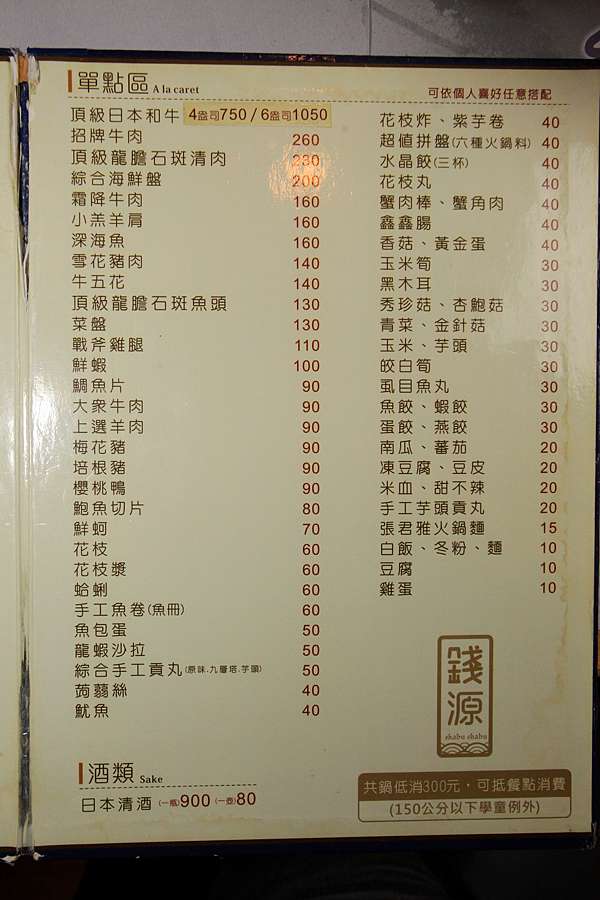 單點區 A la caret
頂級日本和牛 4盎司750 / 6盎司1050
招牌牛肉 260
頂級龍膽石斑清肉 230
綜合海鮮盤 200
霜降牛肉 160
小羔羊肩 160
深海魚 160
雪花豬肉 140
牛五花 140
頂級龍膽石斑魚頭 130
菜盤 130
戰斧雞腿 110
鮮蝦 100
鯛魚片 90
大眾牛肉 90
上選羊肉 90
梅花豬 90
培根豬 90
櫻桃鴨 90
鮑魚切片 80
鮮蚵 70
花枝 60
花枝漿 60
蛤蜊 60
手工魚卷(魚冊) 60
魚包蛋 50
龍蝦沙拉 50
綜合手工貢丸(原味.九層塔.芋頭) 50
蒟蒻絲 40
魷魚 40
可依個人喜好任意搭配
花枝炸、紫芋卷 40
超值拼盤(六種火鍋料) 40
水晶餃(三杯) 40
花枝丸 40
蟹肉棒、蟹角肉 40
鑫鑫腸 40
香菇、黃金蛋 40
玉米筍 30
黑木耳 30
秀珍菇、杏鮑菇 30
青菜、金針菇 30
玉米、芋頭 30
皎白筍 30
虱目魚丸 30
魚餃、蝦餃 30
蛋餃、燕餃 30
南瓜、蕃茄 20
凍豆腐、豆皮 20
米血、甜不辣 20
手工芋頭貢丸 20
張君雅火鍋麵 15
白飯、冬粉、麵 10
豆腐 10
雞蛋 10
錢源
shabu shabu
酒類 Sake
日本清酒 (一瓶)900 (一壺)80
共鍋低消300元，可抵餐點消費
(150公分以下學童例外)